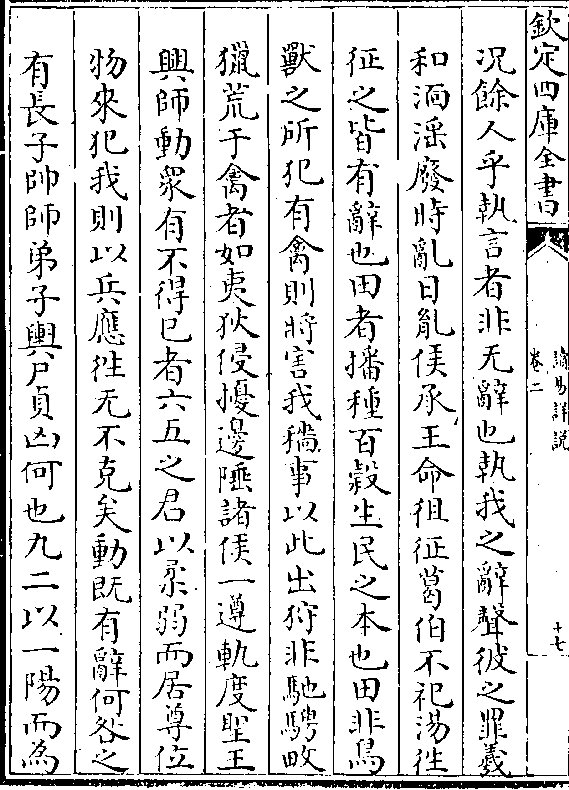 欽定四庫全書
讀易詳說
卷二
十七
況餘人乎執言者非无辭也執我之辭聲彼之罪羲
和湎淫廢時亂日胤侯承王命徂征葛伯不祀湯徃
征之皆有辭也田者播種百榖生民之本也田非鳥
獸之所犯有禽則將害我穡事以此出狩非馳騁畋
獵荒于禽者如夷狄侵擾邊陲諸侯一遵軌度聖王
興師動衆有不得已者六五之君以柔弱而居尊位
物來犯我則以兵應徃无不克矣動既有辭何咎之
有長子帥師弟子輿尸貞凶何也九二以一陽而為